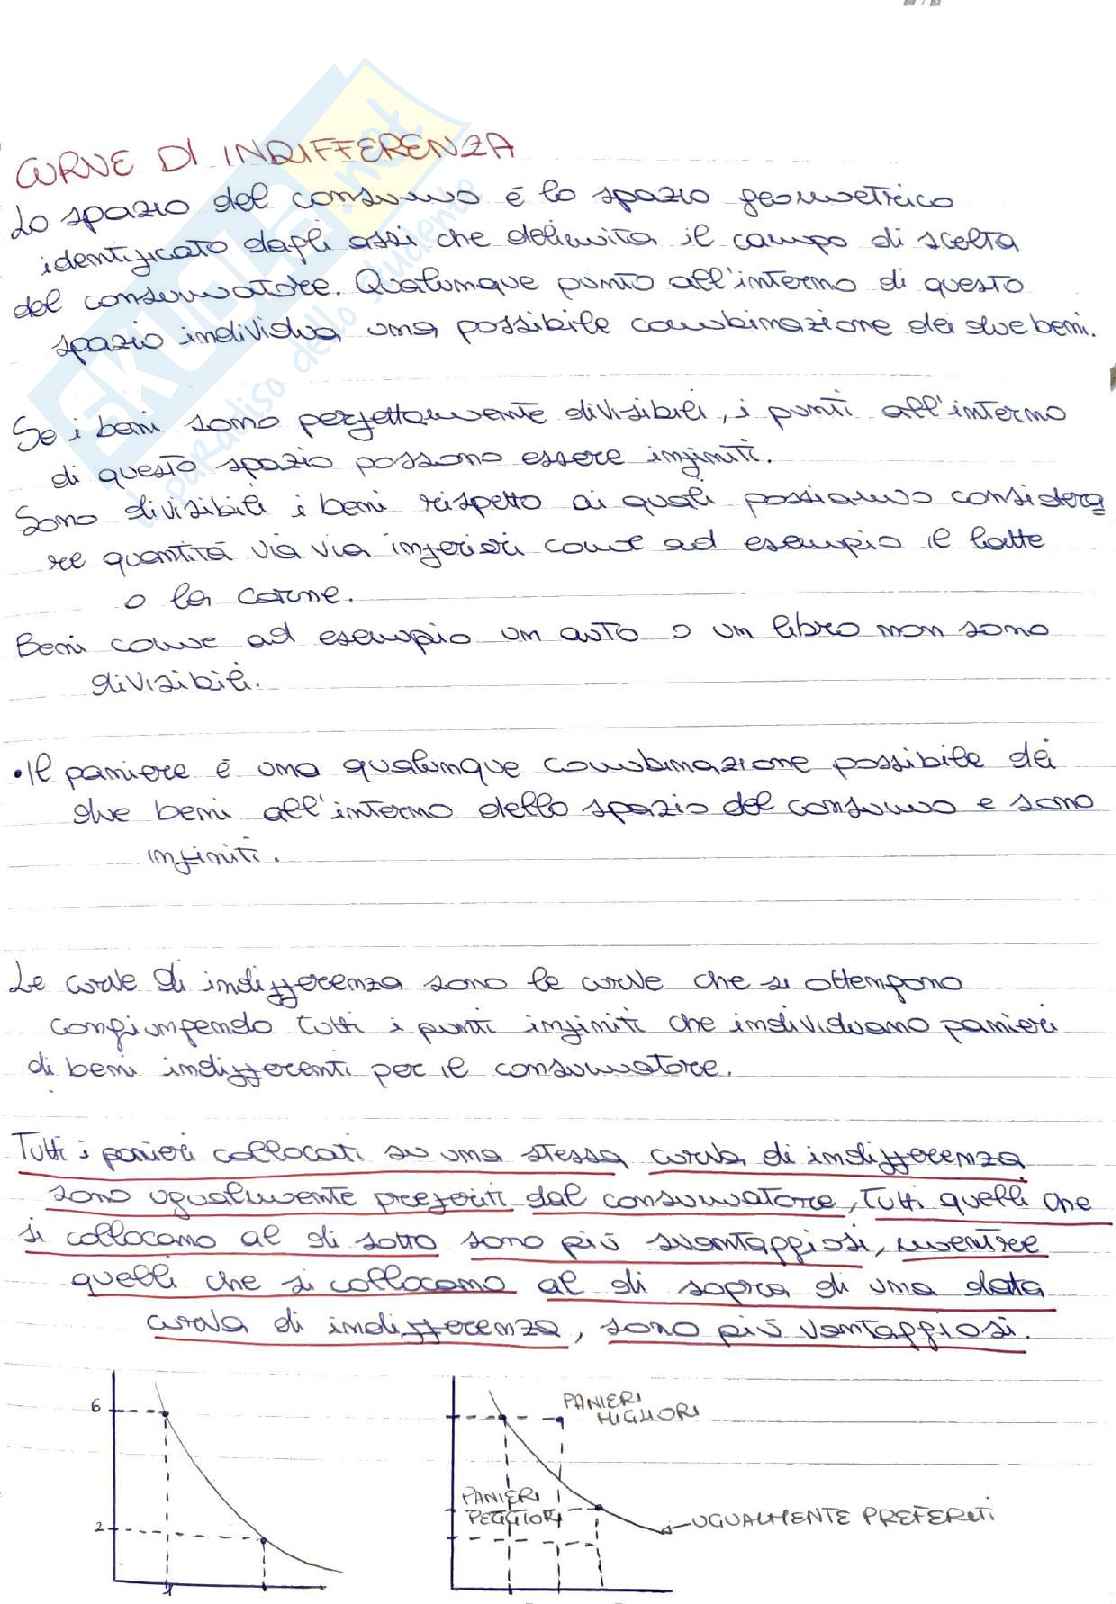 CURVE DI INDIFFERENZA
Lo spazio del consumo è lo spazio geometrico
identificato dagli assi che delimita il campo di scelta
del consumatore. Qualunque punto all'interno di questo
spazio individua una possibile combinazione dei due beni.
Se i beni sono perfettamente divisibili, i punti all'interno
di questo spazio possono essere infiniti.
Sono divisibili i beni rispetto ai quali possiamo considera
re quantità via via inferiori come ad esempio il latte
o la carne.
Beni come ad esempio un auto o un libro non sono
divisibili.
•Il paniere è una qualunque combinazione possibile dei
due beni all'interno dello spazio del consumo e sono
infiniti.
Le curve di indifferenza sono le curve che si ottengono
congiungendo tutti i punti infiniti che individuano panieri
di beni indifferenti per il consumatore.
Tutti i panieri collocati su una stessa curva di indifferenza
sono ugualmente preferiti dal consumatore, tutti quelli che
si collocano al di sotto sono più svantaggiosi, mentre
quelli che si collocano al di sopra di una data
curva di indifferenza, sono più vantaggiosi.
6
2
1
PANIERI
MIGLIORI
PANIERI
PEGGIORI
UGUALMENTE PREFERITI
skuola.net
il paradiso dello studente